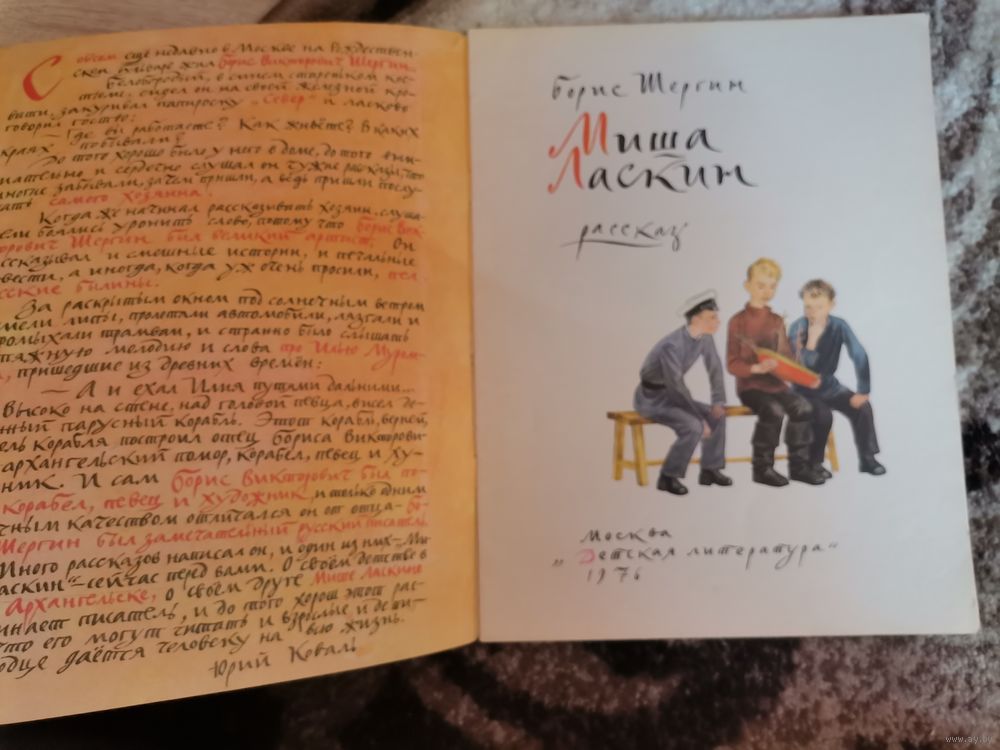 Совсем ещё недавно в Москве на Рождествен-
ском бульваре жил Борис Викторович Шергин.
Белобородый, в синем стареньком кос-
тюме, сидел он на своей железной кро-
вати, закуривал папироску „Север“ и ласково
говорил гостю:
— Где вы работаете? Как живёте? В каких
краях побывали?
До того хорошо было у него в доме, до того вни-
мательно и сердечно слушал он чужие рассказы, что
многие забывали, зачем пришли, а ведь пришли послу-
шать самого хозяина.
Когда же начинал рассказывать хозяин, слуша-
ели боялись уронить слово, потому что Борис Вик-
орович Шергин был великий артист. Он
ссказывал и смешные истории, и печальные
овести, а иногда, когда уж очень просили, пел
сские былины.
За раскрытым окном под солнечным ветром
умели липы, пролетали автомобили, лязгали и
ромыхали трамваи, и странно было слышать
тяжную мелодию и слова про Илью Муром-
, пришедшие из древних времён:
— А и ехал Илия путями дальними...
Высоко на стене, над головой певца, висел де-
нный парусный корабль. Этот корабль, верней,
ель корабля построил отец Бориса Викторови-
архангельский помор, корабел, певец и ху-
ник. И сам Борис Викторович был по-
корабел, певец и художник, и только одним
чным качеством отличался он от отца — Бо-
Шергин был замечательный русский писатель.
Много рассказов написал он, и один из них — „Ми-
аскин“ — сейчас перед вами. О своём детстве в
Архангельске, о своём друге Мише Ласкине
инает писатель, и до того хорош этот рас-
что его могут читать и взрослые, и дети.
рдце даётся человеку на всю жизнь.
Юрий Коваль
Борис Шергин
Миша
Ласкин
рассказ
Москва
„Детская литература“
1976
www.ay.by